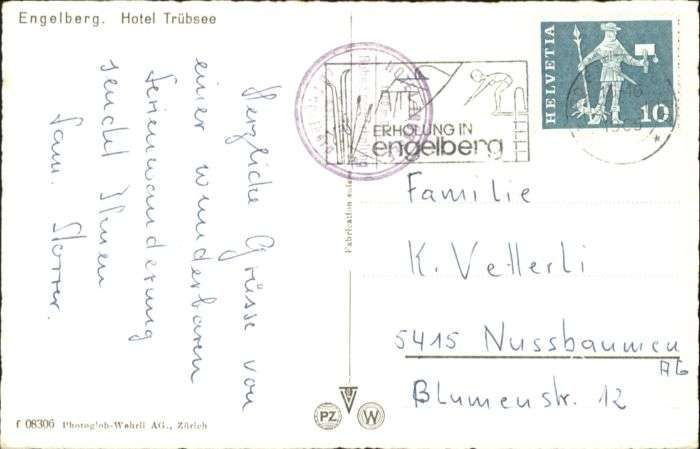 Engelberg. Hotel Trübsee
Herzliche Grüsse von
einer wunderbaren
Ferienwanderung
sendt Ihnen
Fam. Storrer.
ERHOLUNG IN
engelberg
HELVETIA
10
Fabrication suisse
Familie
K. Vetterli
5415 Nussbaumen
AG
Blumenstr. 12
PZ
W
f 08306 Photoglob-Wehrli AG., Zürich